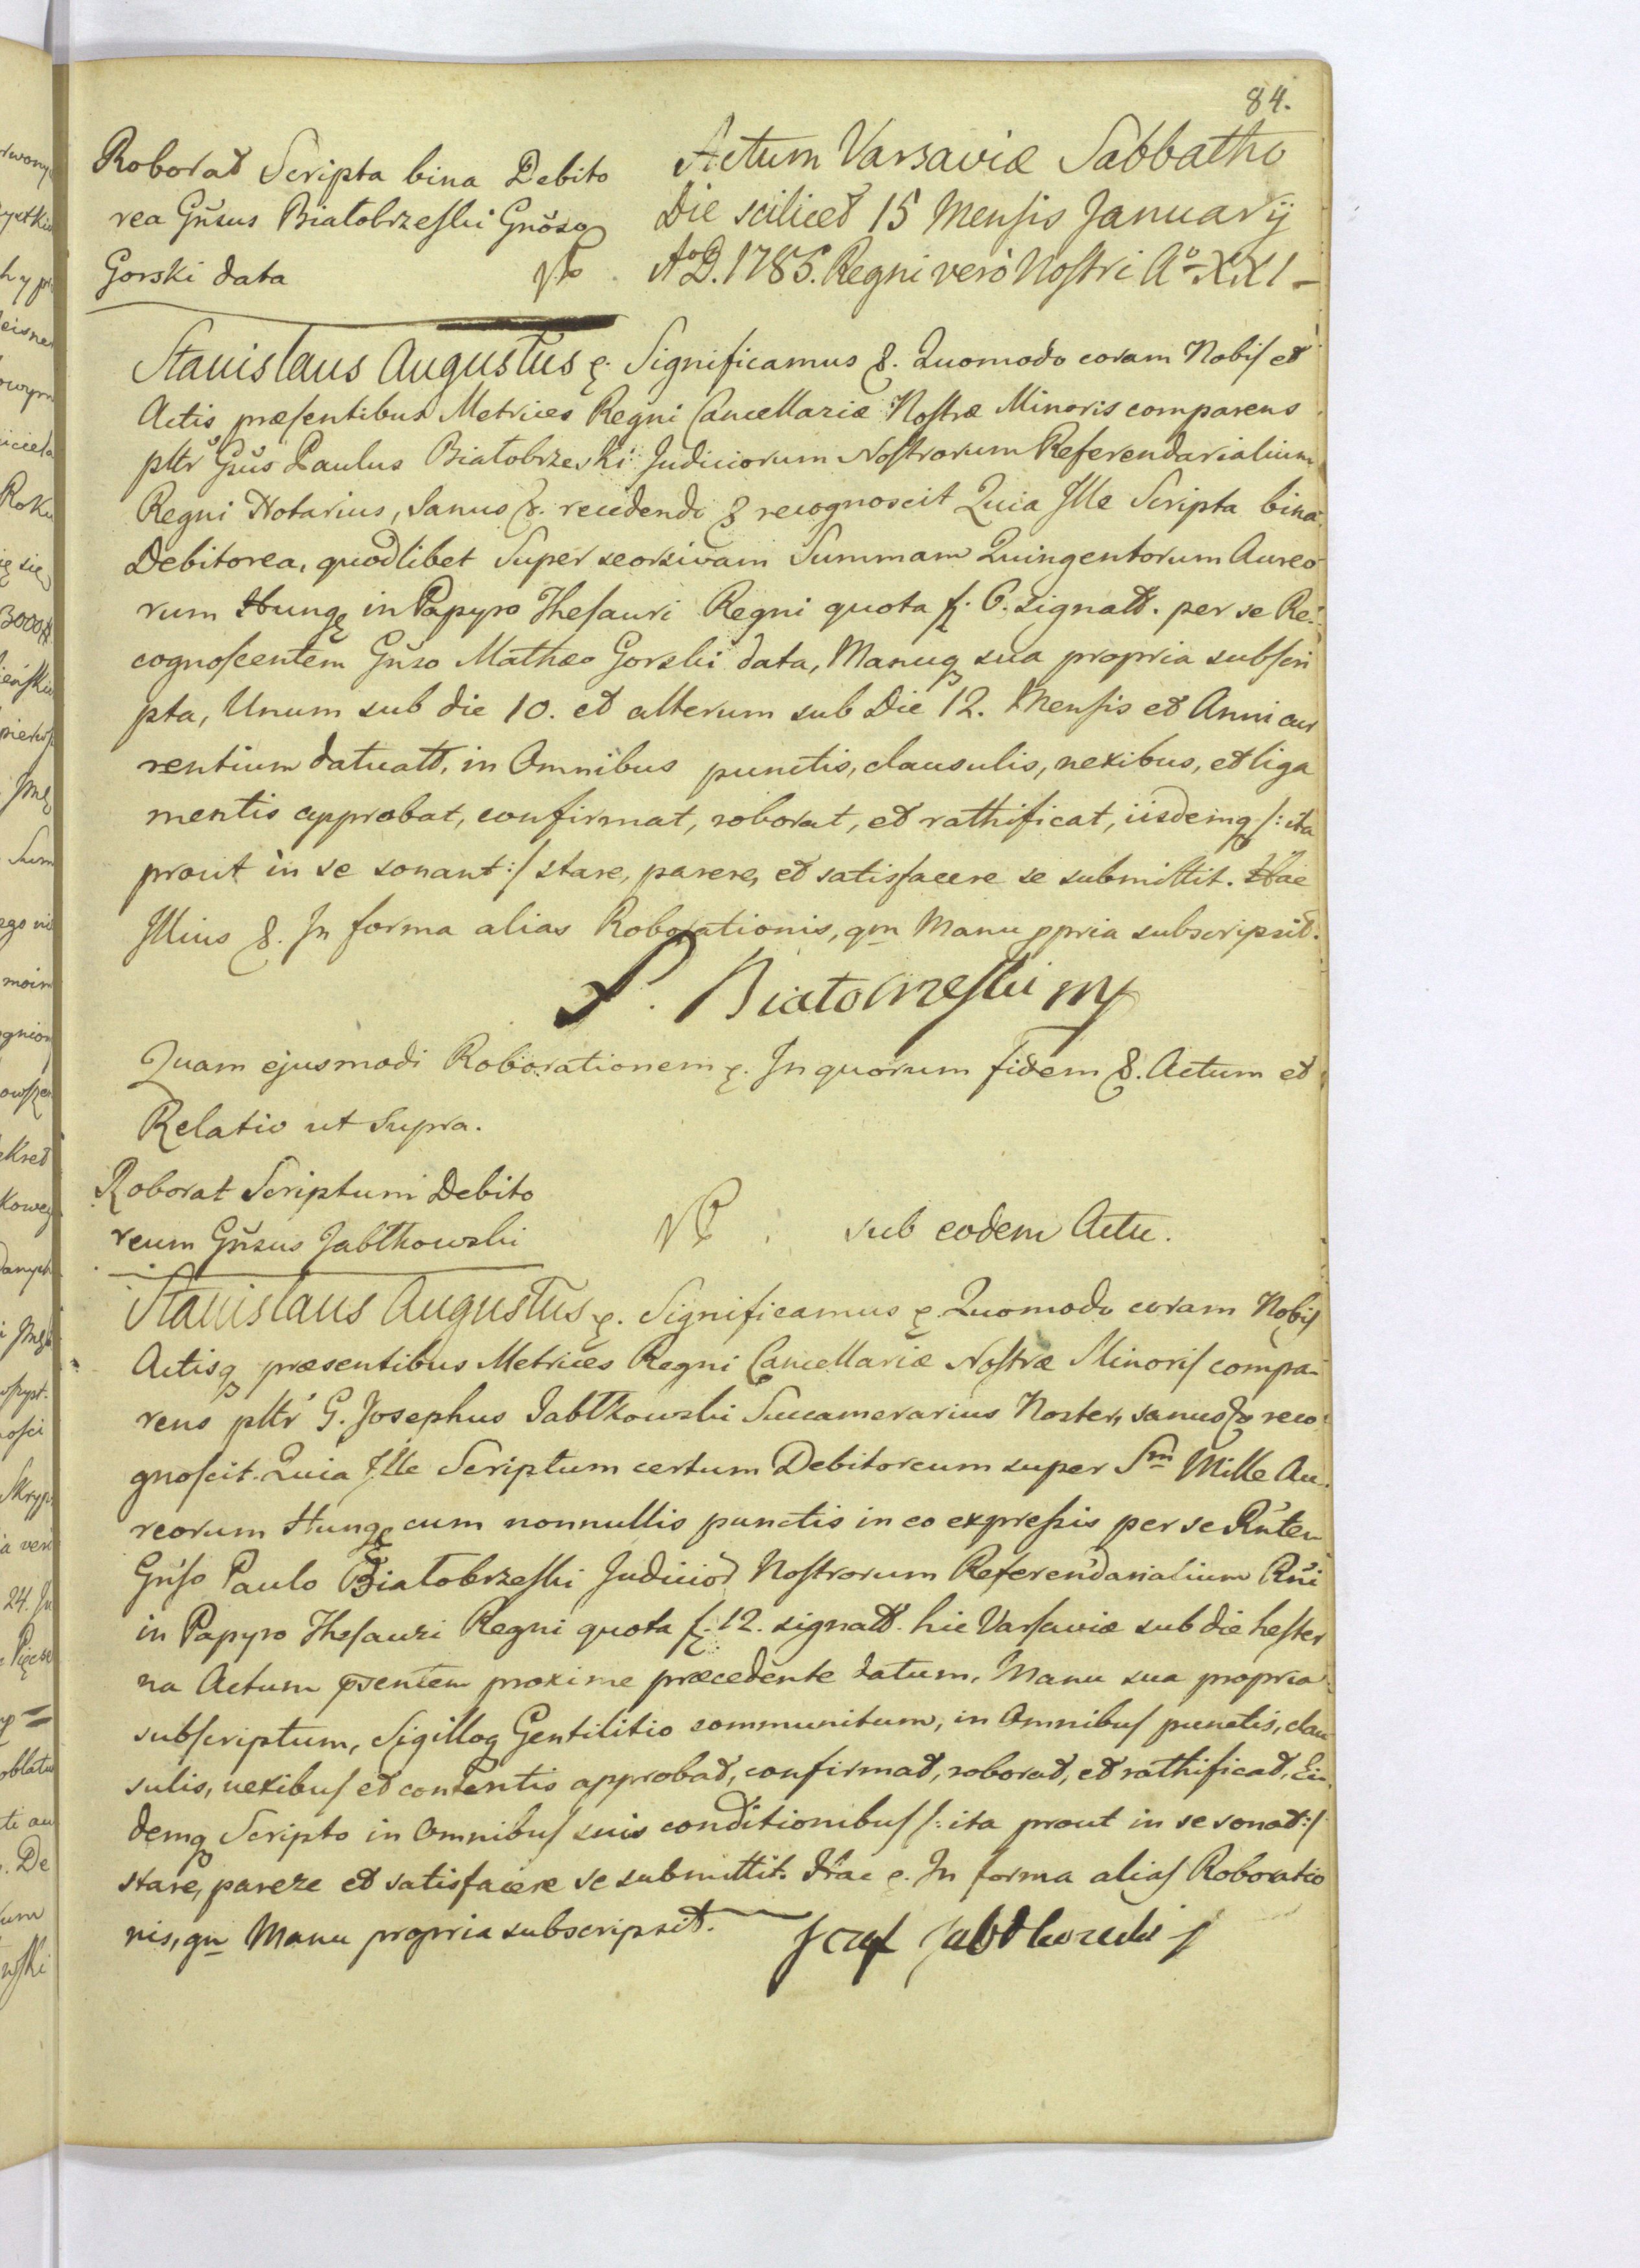 84.
Roborat Scripta bina Debito
rea Gñsus Białobrzeski Gnöso
Gorski data
Actum Varsaviæ Sabbatho
Die scilicet 15 Mensis January
Aº D. 1785. Regni verò Nostri Aº XXI
Stanislaus Augustus &. Significamus &. Quomodo coram Nobis et
Actis præsentibus Metrices Regni Cancellariæ Nostræ Minoris comparens
pltr Gñs Paulus Białobrzeski Judiciorum Nostrorum Referendarialium
Regni Notarius, Sanus &. recedendo & recognoscit Quia Ille Scripta bina
Debitorea, quodlibet Super seorsivam Summam Quingentorum Aureo
rum Hung in Papyro Thesauri Regni quota f. 6. signatt. per se Re
cognoscentem Gñso Mathæo Gorski data, Manuq sua propria subscri
pta, Unum sub die 10. et alterum sub Die 12. Mensis et Anni cur
rentium datuatt, in Omnibus punctis, clausulis, nexibus, et liga
mentis approbat, confirmat, roborat, et rathificat, iisdemq /: ita
prout in se sonant :/ stare, parere, et satisfacere se submittit. Hac
Illius &. In forma alias Roborationis, qm Manu ppria subscripsit.
P. Białobrzeski mp
Quam ejusmodi Roborationem &. In quorum fidem &. Actum et
Relatio ut Supra.
Roborat Scriptum Debito
reum Gñsus Jabłkowski
sub eodem Actu.
Stanislaus Augustus &. Significamus &. Quomodo coram Nobis
Actisq præsentibus Metrices Regni Cancellariæ Nostræ Minoris compa
rens pltr G. Josephus Jabłkowski Succamerarius Noster, sanus & reco
gnoscit. Quia Ille Scriptum certum Debitoreum super Sm Mille Au
reorum Hung cum nonnullis punctis in eo expressis per se Rnten
Gñso Paulo Białobrzeski Judicior Nostrorum Referendarialium Rni
in Papyro Thesauri Regni quota f. 12. signatt. hic Varsaviæ sub die hester
na Actum psentem proxime præcedente datum, Manu sua propria
subscriptum, Sigilloq Gentilitio communitum, in Omnibus punctis, clau
sulis, nexibus et contentis approbat, confirmat, roborat, et rathificat, Ei
demq Scripto in Omnibus suis conditionibus /: ita prout in se sonat :/
stare, parere et satisfacere se submittit. Hac &. In forma alias Roboratio
nis, qm Manu propria subscripsit.
Jozef Jabłkowski